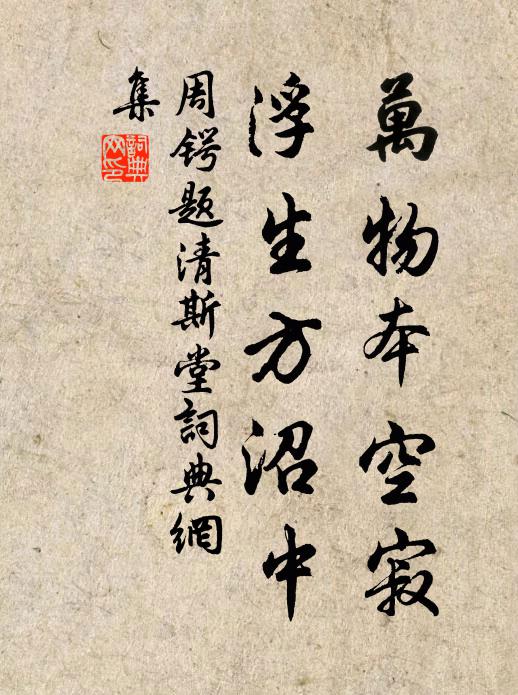 萬物本空寂
浮生方沼中
周锷题清斯堂詞典網
集
詞典
网印